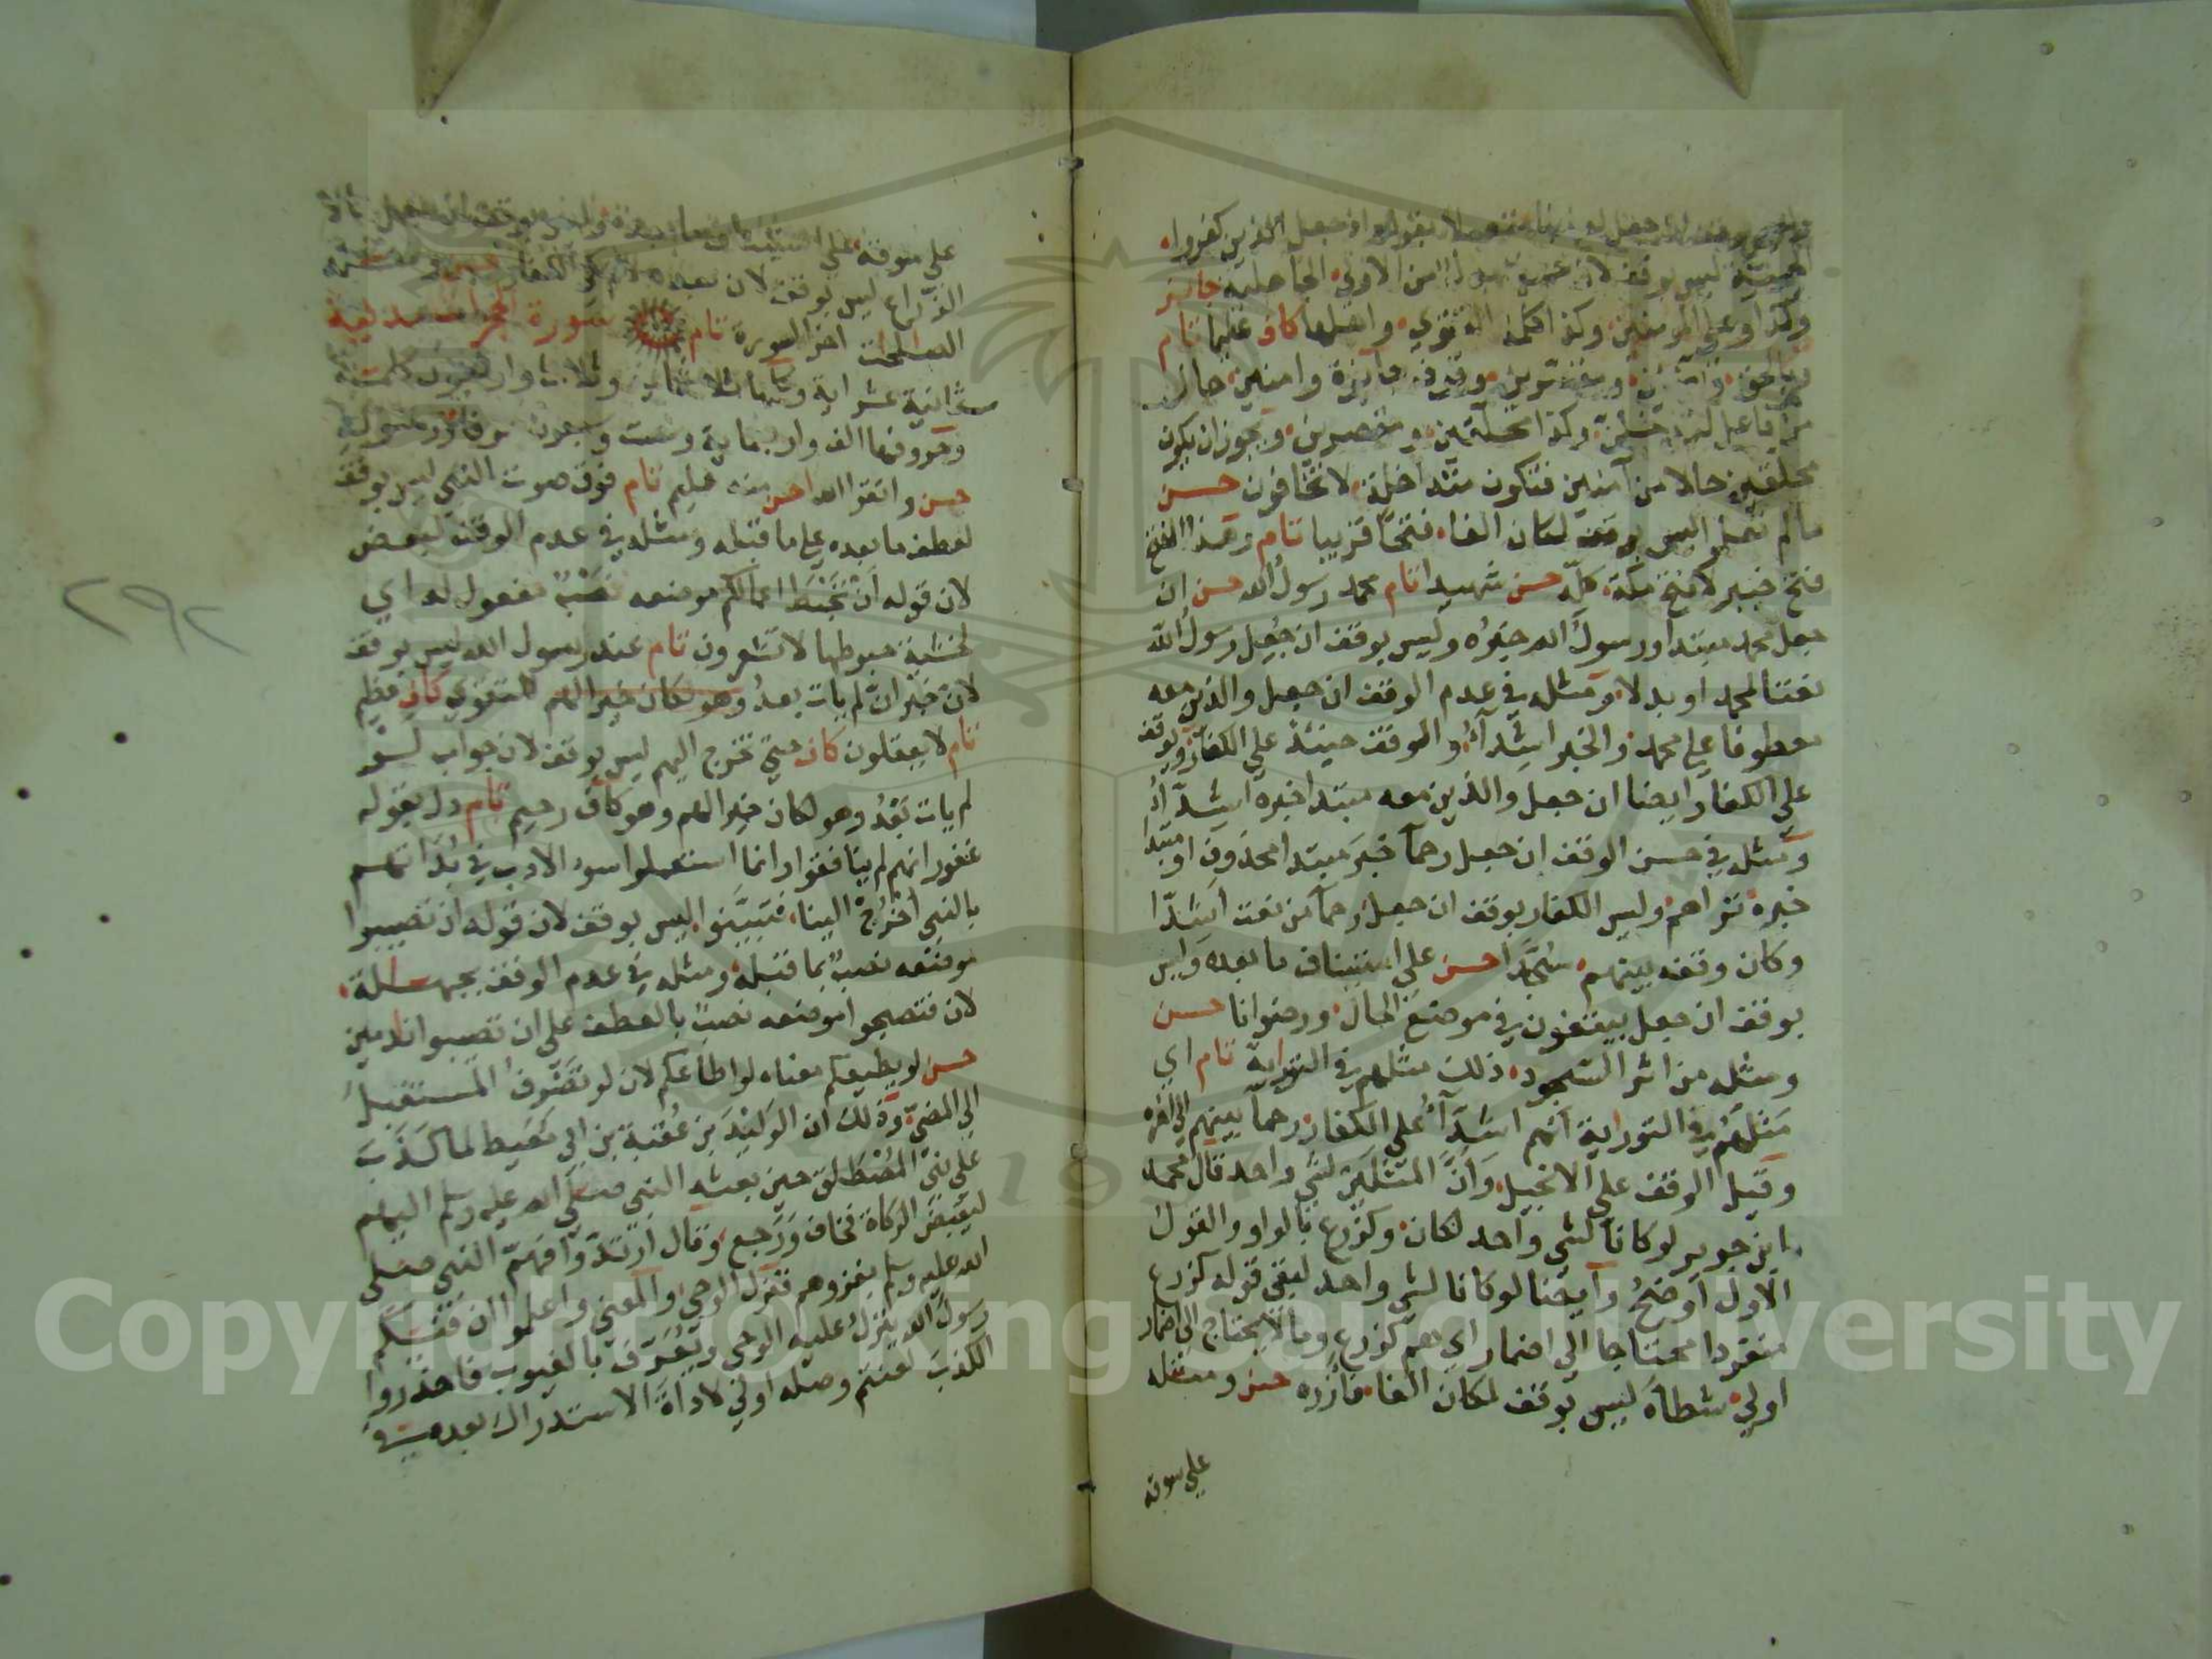 اذ جعل الذين كفروا
الحمية ليس بوقف لان من الاولى الجاهلية جائز
وكذا وعلى المؤمنين وكذا كلمة التقوى واهلها كاف عليما تام
بالحق ومقصرين وامنين حال
من فاعل لتدخلن وكذا محلقين ومقصرين ويجوز ان يكون
محلقين حالا من آمنين فتكون متداخلة لا تخافون حسن
ما لم تعلموا ليس بوقف لمكان الفاء فتحا قريبا تام وهذا الفتح
فتح خيبر لا فتح مكة كلّه حسن شهيدا تام محمد رسول الله حسن ان
جعل محمد مبتدا ورسول الله خبره وليس بوقف ان جعل رسول الله
نعتا لمحمد او بدلا ومثله في عدم الوقف ان جعل والذين معه
معطوفا على محمد والخبر اشداء والوقف حينئذ على الكفار ويوقف
على الكفار ايضا ان جعل والذين معه مبتدا خبره اشداء
ومثله في حسن الوقف ان جعل رحما خبر مبتدا محذوف او مبتدا
خبره تراهم وليس الكفار بوقف ان جعل رحما من نعت اشدا
وكان وقفه بينهم سجّدا حسن على استيناف ما بعده وليس
بوقف ان جعل يبتغون في موضع الحال ورضوانا حسن
ومثله من اثر السجود ذلك مثلهم في التوراية تام اي
مثلهم في التوراية انهم اشدآء على الكفار رحما بينهم الى اخره
وقيل الوقف على الانجيل وانّ المثلين لشي واحد قال محمد
ابن جرير لو كانا لشي واحد لكان وكزرع بالواو والقول
الاول اوضح وايضا لو كانا لشي واحد لبقي قوله كزرع
منفردا محتاجا الى اضمار اي هم كزرع وما لا يحتاج الى اضمار
اولى شطأه ليس بوقف لمكان الفاء فآزره حسن ومثله
على سوقه
على سوقه على استيناف ما بعده وليس بوقف ان جعل
الزراع ليس بوقف لان بعده لام كي الكفار حسن
الصلحت اخر السورة تام سورة الحجرات مدنية
ثمانية عشر اية وكلمها ثلاثماية وثلاث واربعون كلمة
وحروفها الف واربعماية وست وسبعون حرفا ورسوله
حسن واتقوا الله احسن منه عليم تام فوق صوت النبي ليس بوقف
لعطف ما بعده على ما قبله ومثله في عدم الوقف لبعض
لان قوله ان تحبط اعمالكم موضعه نصب مفعول له اي
لخشية حبوطها لا تشعرون تام عند رسول الله ليس بوقف
لان خبر انّ لم يات بعدُ وهو لكان خيرا لهم للتقوى كاف عظيم
تام لا يعقلون كاف حتى تخرج اليهم ليس بوقف لان جواب لو
لم يات بعدُ وهو لكان خيرا لهم وهو كاف رحيم تام دل بقوله
غفور انهم لم ينافقوا وانما استعملوا سوء الادب في ندائهم
بالنبي اخرج الينا فتبيّنوا ليس بوقف لان قوله ان تصيبوا
موضعه نصب بما قبله ومثله في عدم الوقف بجهالة
لان فتصبحوا موضعه نصب بالعطف على ان تصيبوا نادمين
حسن لو يطيعكم معناه لو اطاعكم لان لو تصرف المستقبل
الى المضيّ وذلك ان الوليد بن عقبة بن ابي معيط لما كذب
على بني المصطلق حين بعثه النبي صلى الله عليه وسلم اليهم
ليقبض الزكاة فخاف ورجع وقال ارتدوا فهمّ النبي صلى
الله عليه وسلم بغزوهم فنزل الوحي والمعنى واعلموا ان فيكم
رسول الله ينزل عليه الوحي ويعرف بالغيوب فاحذروا
الكذب لعنتم وصله اولى لاداة الاستدراك بعده في
٢٩٢
Copyright © King Saud University
1957